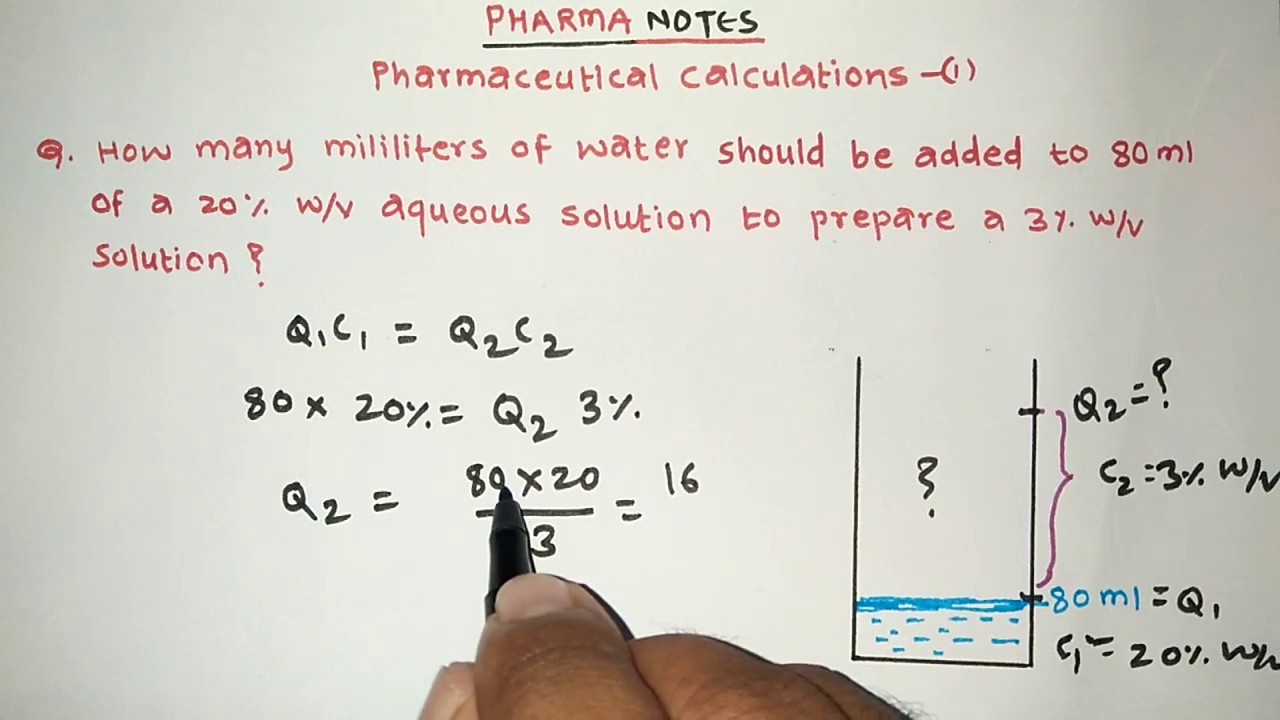 PHARMA NOTES
Pharmaceutical calculations -(1)
Q. How many mililiters of water should be added to 80 ml
of a 20% w/v aqueous solution to prepare a 3% w/v
solution ?
Q₁C₁ = Q₂C₂
80 × 20% = Q₂ 3%
Q₂ = 80 × 20 / 3 = 16
?
Q₂ = ?
C₂ = 3% w/v
80 ml = Q₁
C₁ = 20% w/v